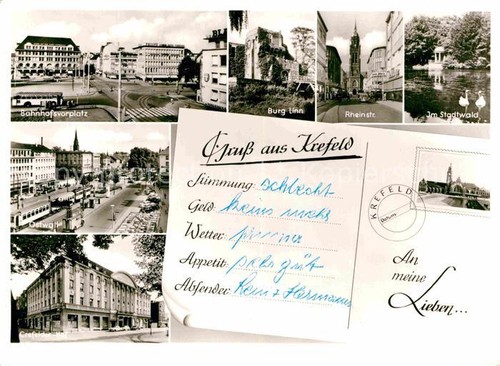 Bahnhofsvorplatz
Burg Linn
Rheinstr.
Im Stadtwald
Ostwall
Gruß aus Krefeld
Stimmung: schlecht
Geld: keins mehr
Wetter: prima
Appetit: sehr gut
Absender: Hermann
KREFELD
Datum
An
meine
Lieben...